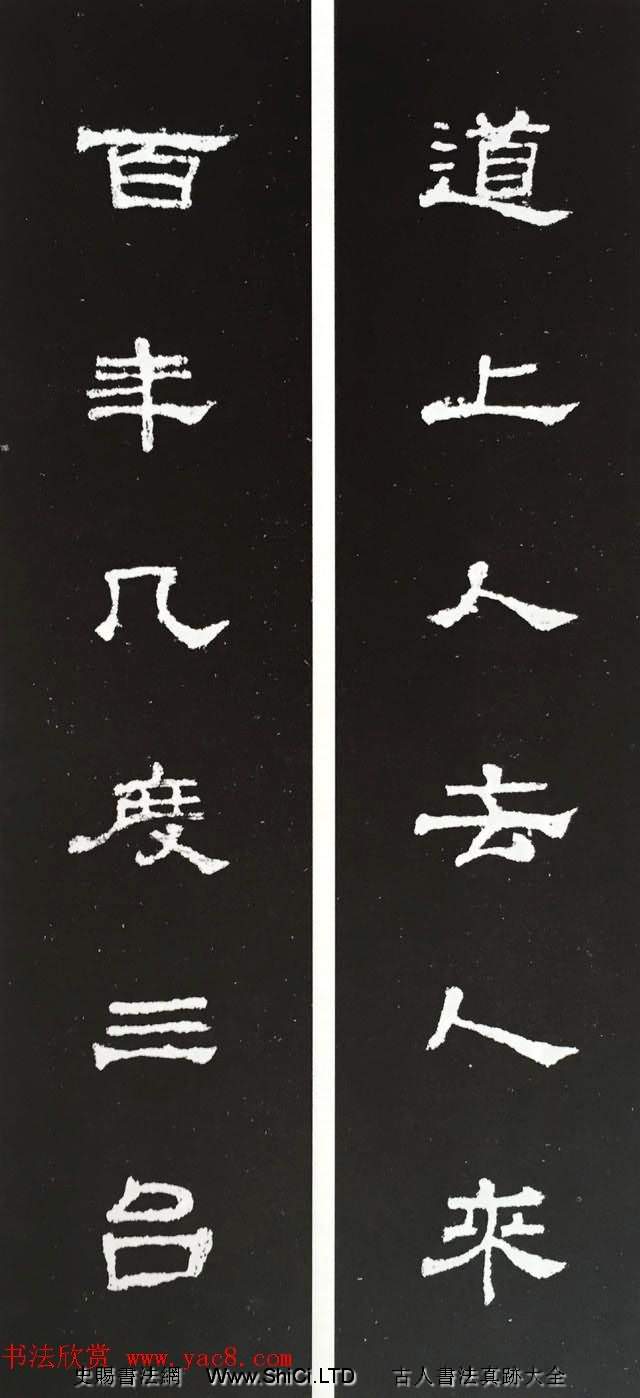 道上人去人來
百年几度三
书法欣赏 www.yac8.com
史賜書法網 Www.ShiCi.LTD 古人書法真跡大全